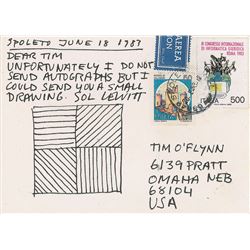 SPOLETO JUNE 18 1983
DEAR TIM
UNFORTUNATELY I DO NOT
SEND AUTOGRAPHS BUT I
COULD SEND YOU A SMALL
DRAWING. SOL LEWITT
AEREA
III CONGRESSO INTERNAZIONALE
DI INFORMATICA GIURIDICA
ROMA 1983
500
TIM O'FLYNN
6139 PRATT
OMAHA NEB
68104
USA